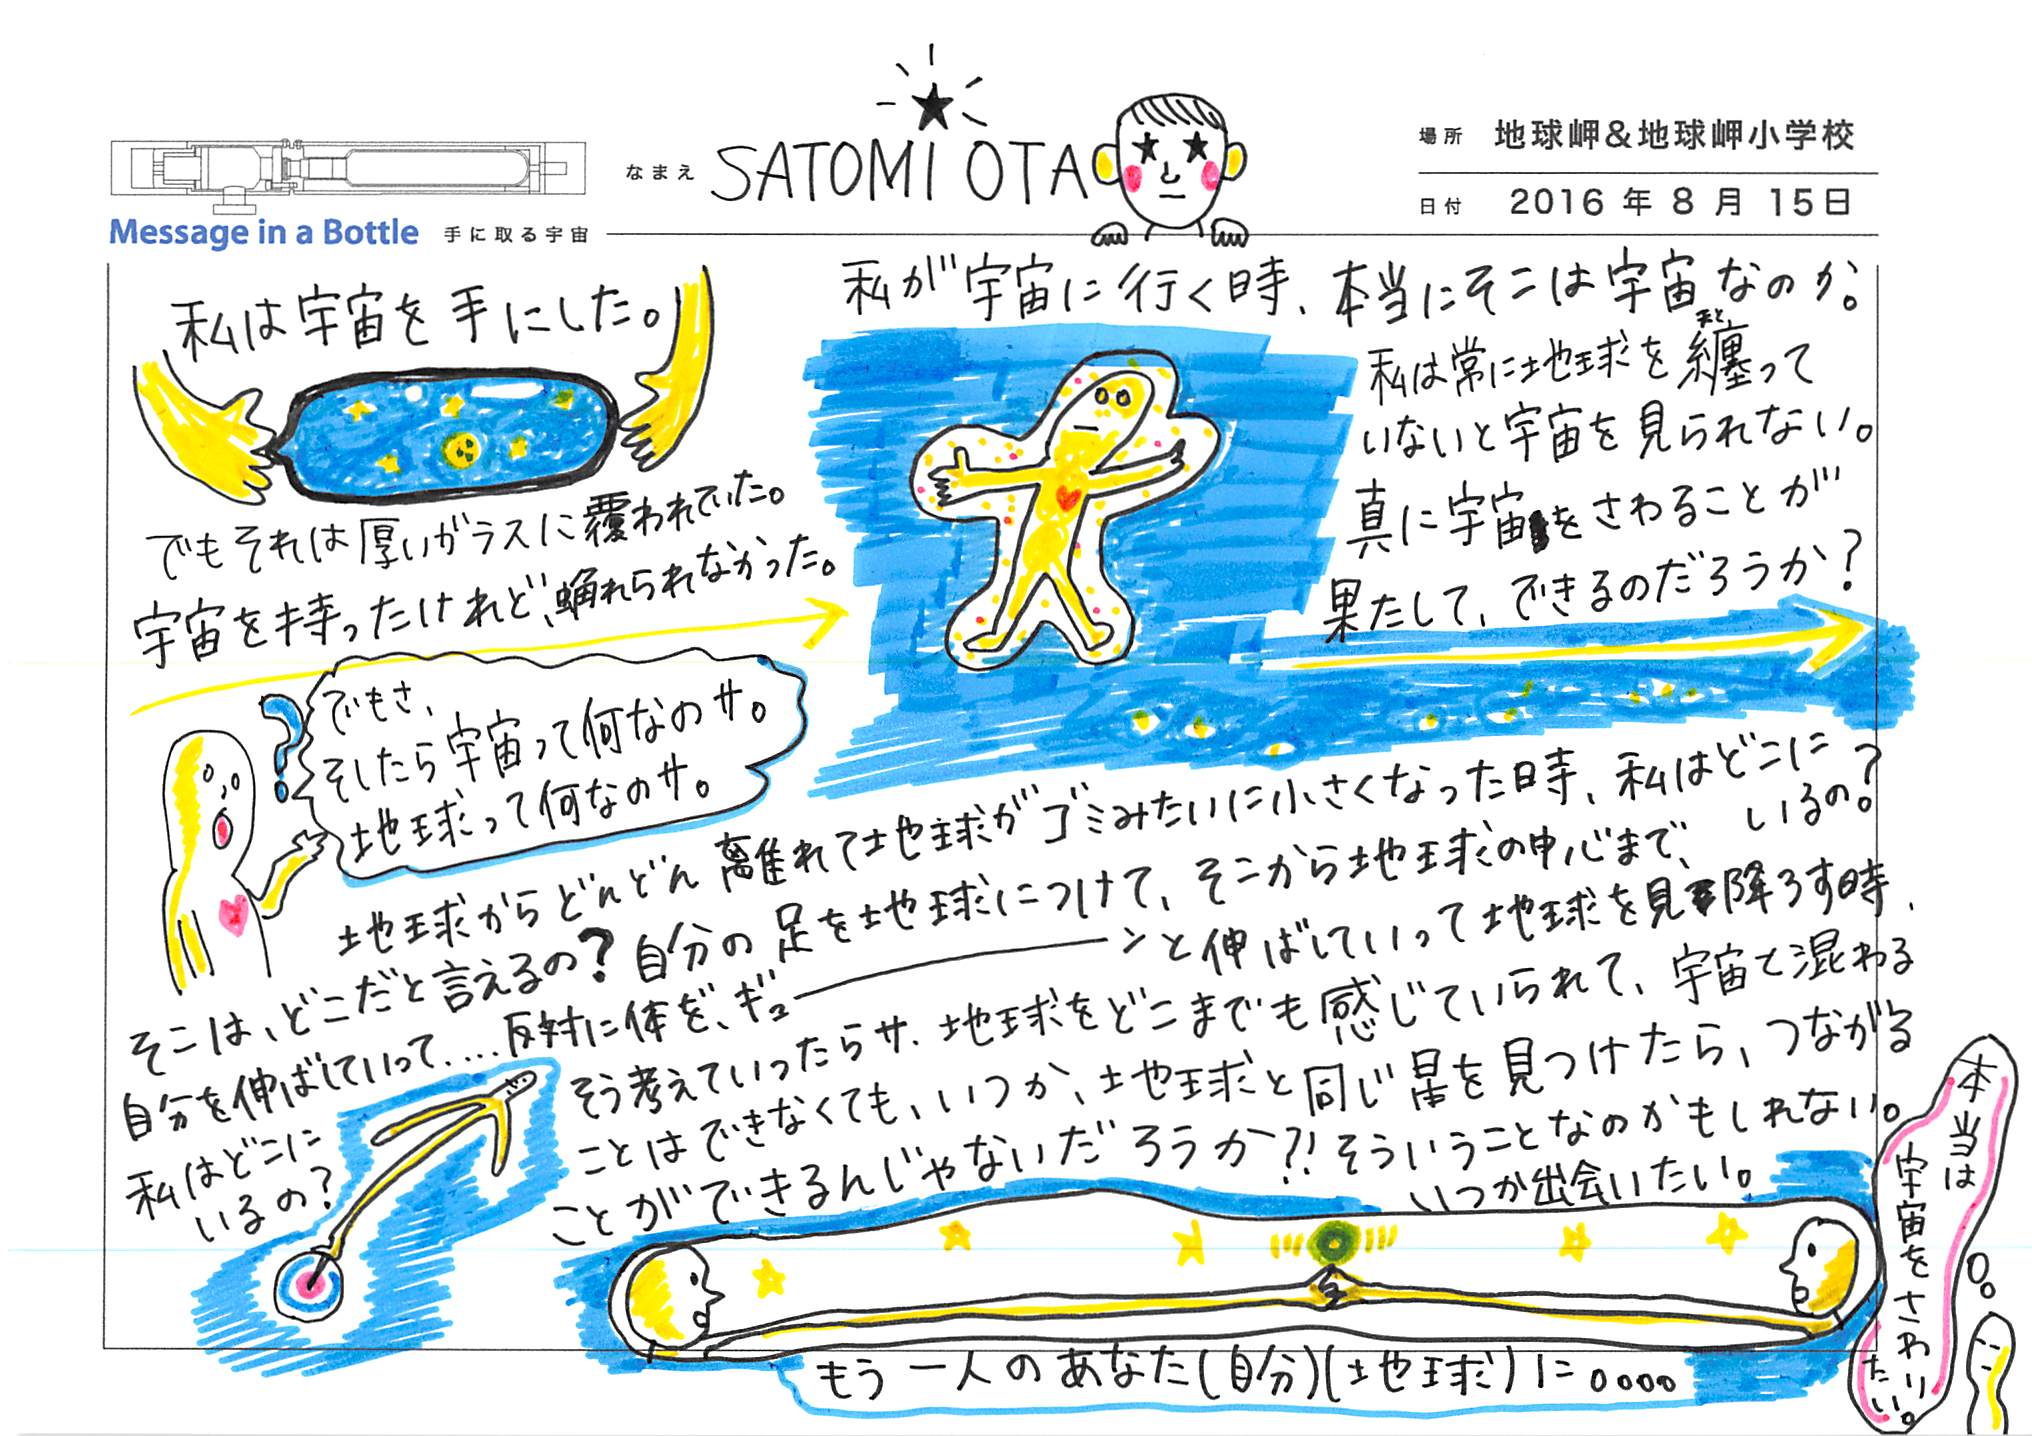 なまえ SATOMI OTA
場所 地球岬&地球岬小学校
日付 2016年8月15日
Message in a Bottle 手に取る宇宙
私は宇宙を手にした。
でもそれは厚いガラスに覆われていた。
宇宙を持ったけれど、触れられなかった。
でもさ、
そしたら宇宙って何なのサ。
地球って何なのサ。
?
私が宇宙に行く時、本当にそこは宇宙なのか。
私は常に地球を纏って
まと
いないと宇宙を見られない。
真に宇宙をさわることが
果たして、できるのだろうか?
地球からどんどん離れて地球がゴミみたいに小さくなった時、私はどこに
いるの?
そこは、どこだと言えるの?自分の足を地球につけて、そこから地球の中心まで、
自分を伸ばしていって....反対に体を、ギューーンと伸ばしていって地球を見降ろす時、
私はどこに
いるの?
そう考えていったらサ、地球をどこまでも感じていられて、宇宙と混わる
ことはできなくても、いつか、地球と同じ星を見つけたら、つながる
ことができるんじゃないだろうか?!そういうことなのかもしれない。
いつか出会いたい。
もう一人のあなた(自分)(地球)に。。。。
本当は
宇宙をさわりたい。